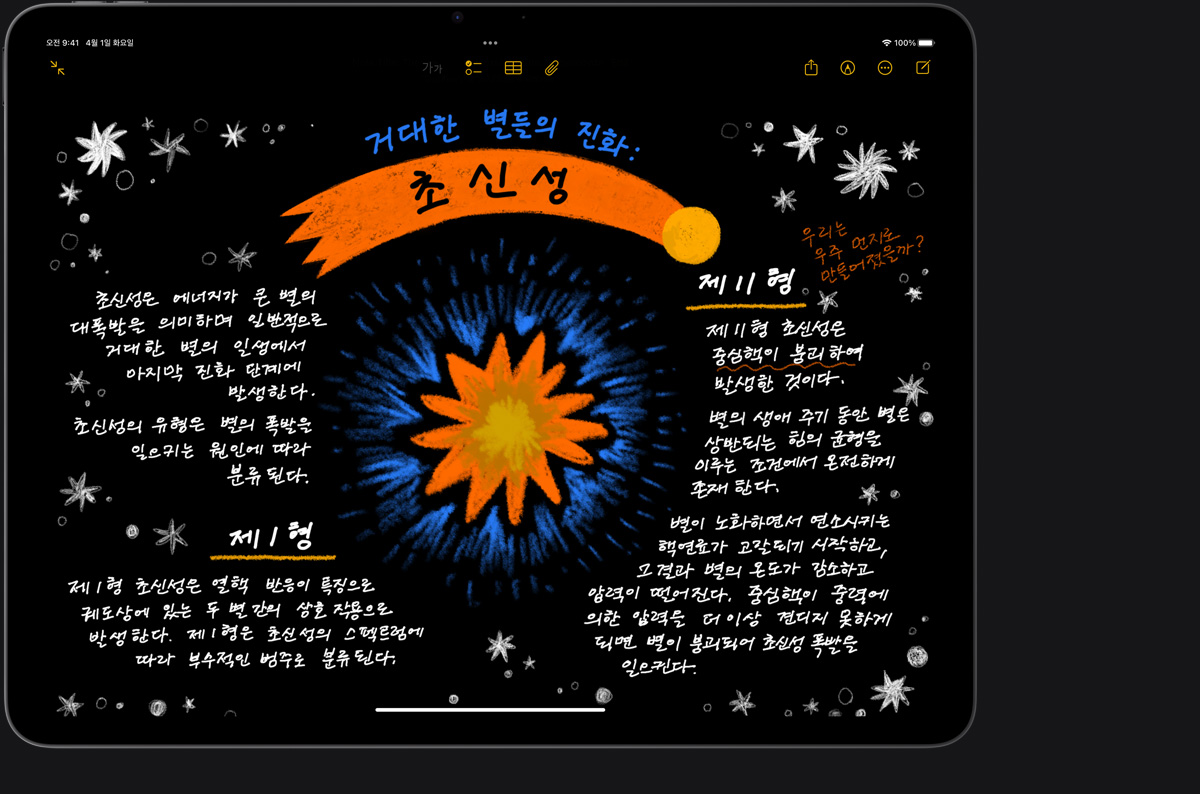 오전 9:41 4월 1일 화요일
100%
가가
거대한 별들의 진화:
초신성
우리는
우주 먼지로
만들어졌을까?
초신성은 에너지가 큰 별의
대폭발을 의미하며 일반적으로
거대한 별의 일생에서
마지막 진화 단계에
발생한다.
초신성의 유형은 별의 폭발을
일으키는 원인에 따라
분류된다.
제 I 형
제 I 형 초신성은 열핵 반응이 특징으로
궤도상에 있는 두 별 간의 상호 작용으로
발생한다. 제 I 형은 초신성의 스펙트럼에
따라 부수적인 범주로 분류된다.
제 II 형
제 II 형 초신성은
중심핵이 붕괴하여
발생한 것이다.
별의 생애 주기 동안 별은
상반되는 힘의 균형을
이루는 조건에서 온전하게
존재한다.
별이 노화하면서 연소시키는
핵연료가 고갈되기 시작하고,
그 결과 별의 온도가 감소하고
압력이 떨어진다. 중심핵이 중력에
의한 압력을 더 이상 견디지 못하게
되면 별이 붕괴되어 초신성 폭발을
일으킨다.